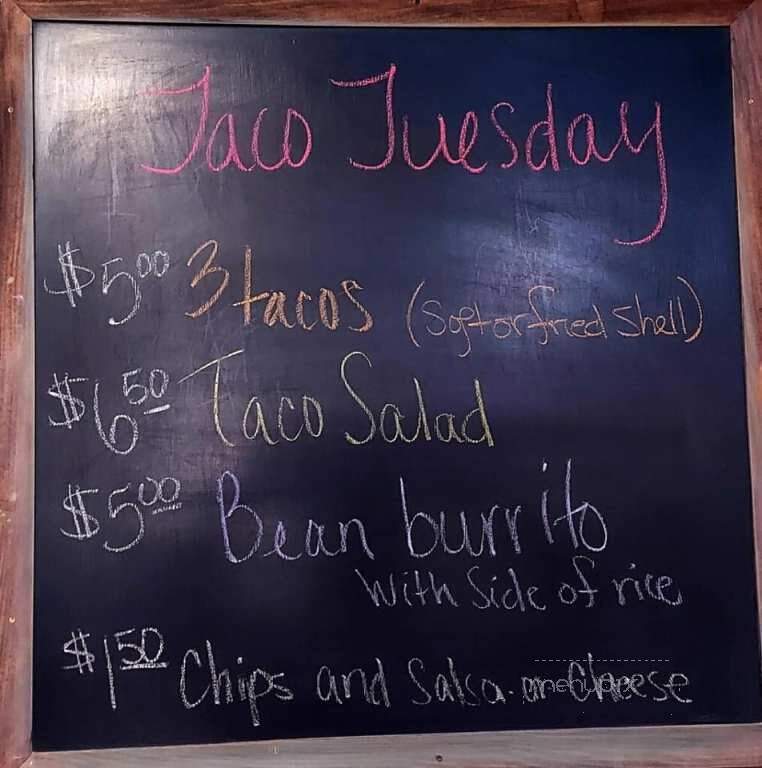 Taco Tuesday
$5.00 3 tacos (Soft or fried Shell)
$6.50 Taco Salad
$5.00 Bean burrito
with Side of rice
$1.50 Chips and Salsa or Cheese